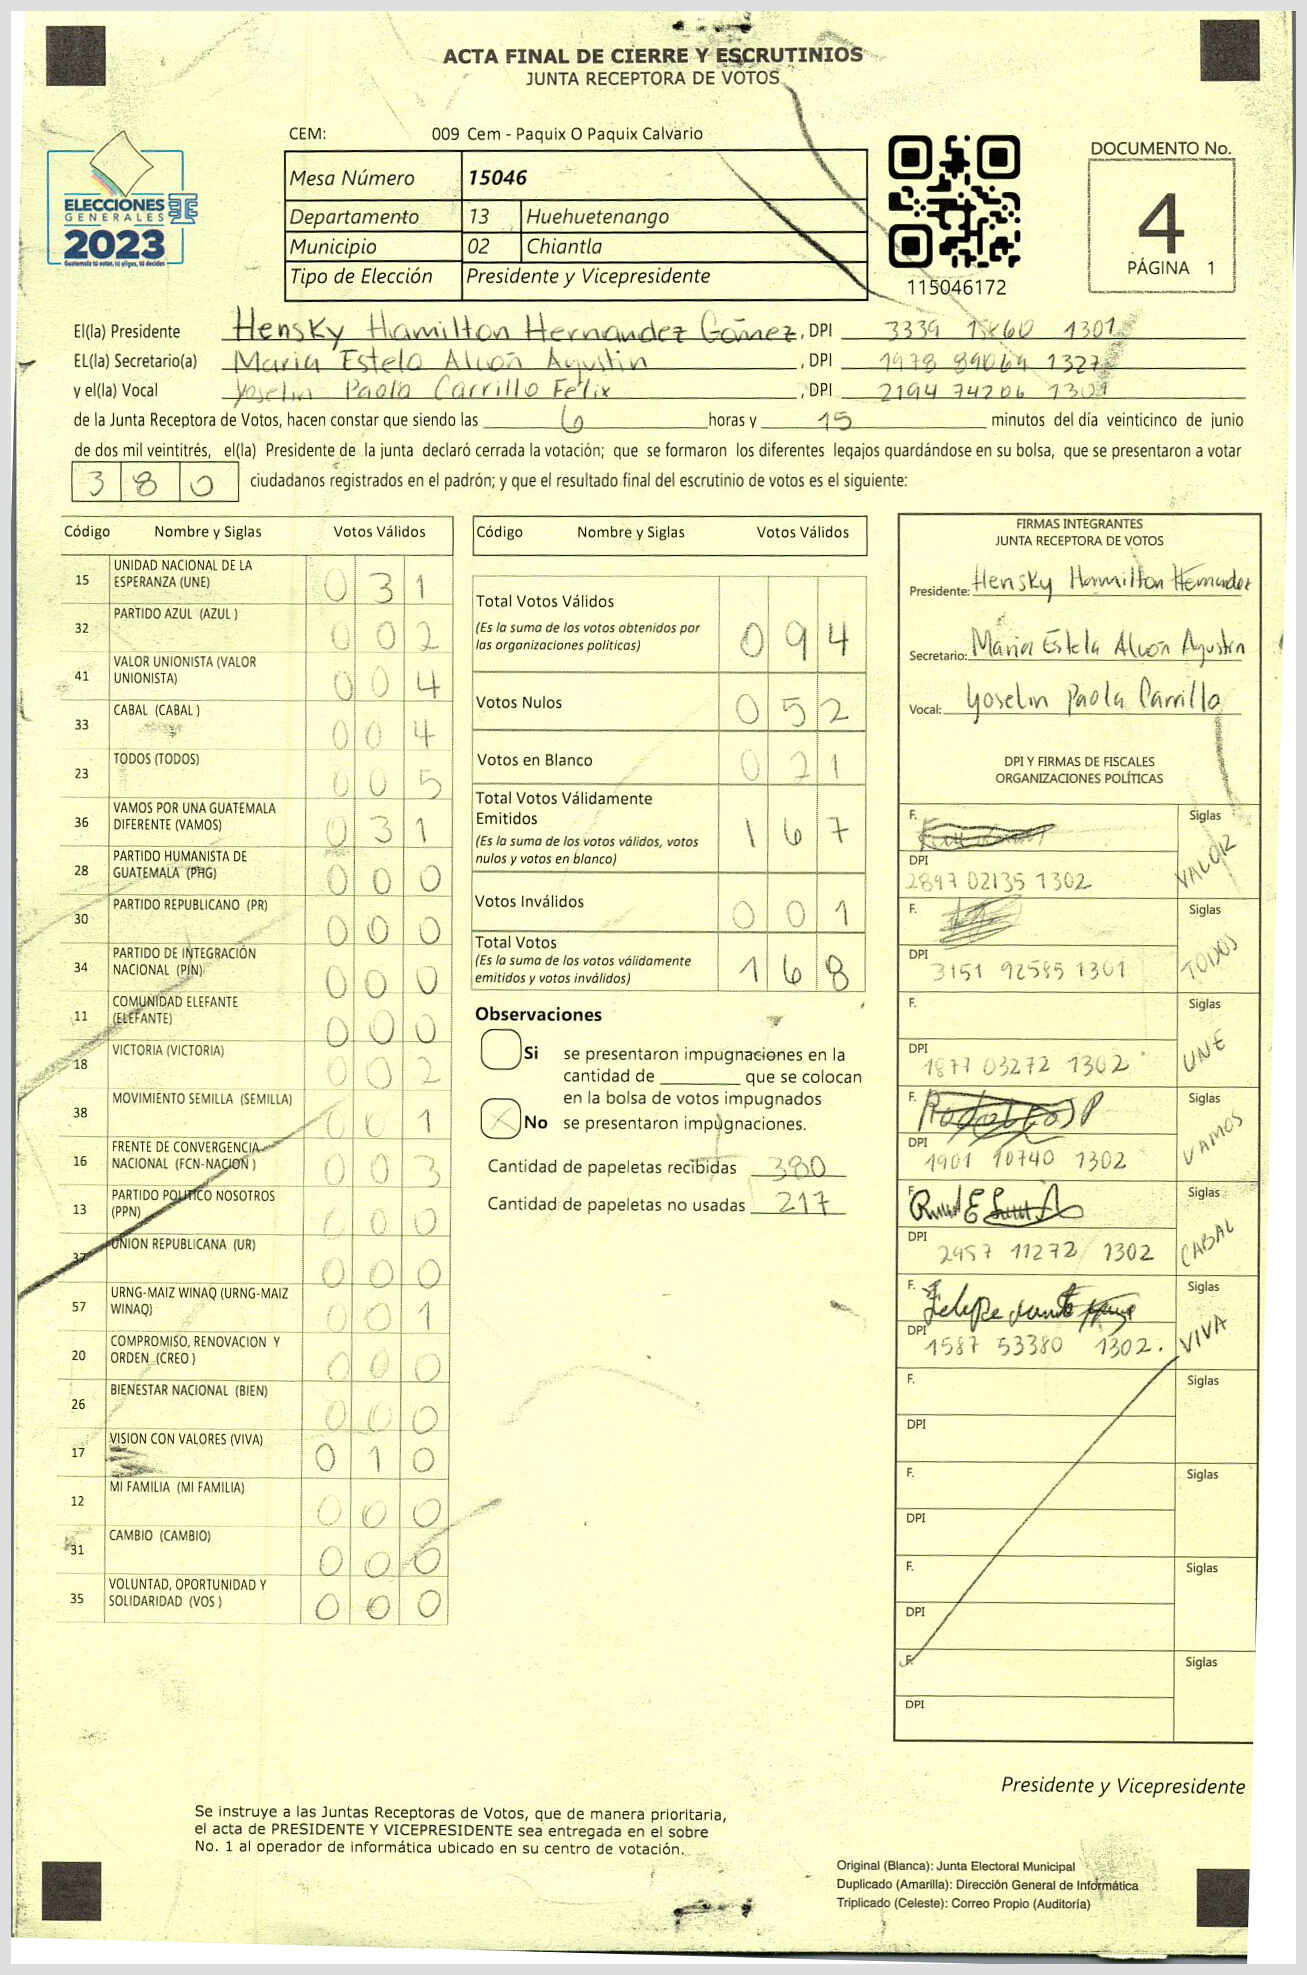 ACTA FINAL DE CIERRE Y ESCRUTINIOS
JUNTA RECEPTORA DE VOTOS
CEM: 009 Cem - Paquix O Paquix Calvario
ELECCIONES
GENERALES
2023
Guatemala tú votas, tú eliges, tú decides
Mesa Número 15046
Departamento 13 Huehuetenango
Municipio 02 Chiantla
Tipo de Elección Presidente y Vicepresidente
115046172
DOCUMENTO No.
4
PÁGINA 1
El(la) Presidente Hensky Hamilton Hernandez Gómez, DPI 3339 15860 1301
EL(la) Secretario(a) Maria Estela Alvón Agustin, DPI 1978 89069 1327
y el(la) Vocal Yoselin Paola Carrillo Felix, DPI 2194 74206 1301
de la Junta Receptora de Votos, hacen constar que siendo las 6 horas y 15 minutos del día veinticinco de junio
de dos mil veintitrés, el(la) Presidente de la junta declaró cerrada la votación; que se formaron los diferentes legajos guardándose en su bolsa, que se presentaron a votar
380 ciudadanos registrados en el padrón; y que el resultado final del escrutinio de votos es el siguiente:
Código Nombre y Siglas Votos Válidos
15 UNIDAD NACIONAL DE LA ESPERANZA (UNE) 031
32 PARTIDO AZUL (AZUL ) 002
41 VALOR UNIONISTA (VALOR UNIONISTA) 004
33 CABAL (CABAL ) 004
23 TODOS (TODOS) 005
36 VAMOS POR UNA GUATEMALA DIFERENTE (VAMOS) 031
28 PARTIDO HUMANISTA DE GUATEMALA (PHG) 000
30 PARTIDO REPUBLICANO (PR) 000
34 PARTIDO DE INTEGRACIÓN NACIONAL (PIN) 000
11 COMUNIDAD ELEFANTE (ELEFANTE) 000
18 VICTORIA (VICTORIA) 002
38 MOVIMIENTO SEMILLA (SEMILLA) 001
16 FRENTE DE CONVERGENCIA NACIONAL (FCN-NACION ) 003
13 PARTIDO POLITICO NOSOTROS (PPN) 000
37 UNION REPUBLICANA (UR) 000
57 URNG-MAIZ WINAQ (URNG-MAIZ WINAQ) 001
20 COMPROMISO, RENOVACION Y ORDEN (CREO ) 000
26 BIENESTAR NACIONAL (BIEN) 000
17 VISION CON VALORES (VIVA) 010
12 MI FAMILIA (MI FAMILIA) 000
31 CAMBIO (CAMBIO) 000
35 VOLUNTAD, OPORTUNIDAD Y SOLIDARIDAD (VOS ) 000
Código Nombre y Siglas Votos Válidos
Total Votos Válidos 094
(Es la suma de los votos obtenidos por
las organizaciones políticas)
Votos Nulos 052
Votos en Blanco 021
Total Votos Válidamente
Emitidos 167
(Es la suma de los votos válidos, votos
nulos y votos en blanco)
Votos Inválidos 001
Total Votos 168
(Es la suma de los votos válidamente
emitidos y votos inválidos)
Observaciones
Si se presentaron impugnaciones en la
cantidad de ________ que se colocan
en la bolsa de votos impugnados
X No se presentaron impugnaciones.
Cantidad de papeletas recibidas 380
Cantidad de papeletas no usadas 217
FIRMAS INTEGRANTES
JUNTA RECEPTORA DE VOTOS
Presidente: Hensky Hamilton Hernandez
Secretario: Maria Estela Alvón Agustin
Vocal: Yoselin Paola Carrillo
DPI Y FIRMAS DE FISCALES
ORGANIZACIONES POLÍTICAS
F. Siglas VALOR
DPI 2897 02135 1302
F. Siglas TODOS
DPI 3151 92585 1301
F. Siglas UNE
DPI 1877 03272 1302
F. Siglas VAMOS
DPI 1901 10740 1302
F. Siglas CABAL
DPI 2957 11272 1302
F. Felipe Siglas VIVA
DPI 1587 53380 1302.
F. Siglas
DPI
F. Siglas
DPI
F. Siglas
DPI
F. Siglas
DPI
Presidente y Vicepresidente
Se instruye a las Juntas Receptoras de Votos, que de manera prioritaria,
el acta de PRESIDENTE Y VICEPRESIDENTE sea entregada en el sobre
No. 1 al operador de informática ubicado en su centro de votación.
Original (Blanca): Junta Electoral Municipal
Duplicado (Amarilla): Dirección General de Informática
Triplicado (Celeste): Correo Propio (Auditoría)